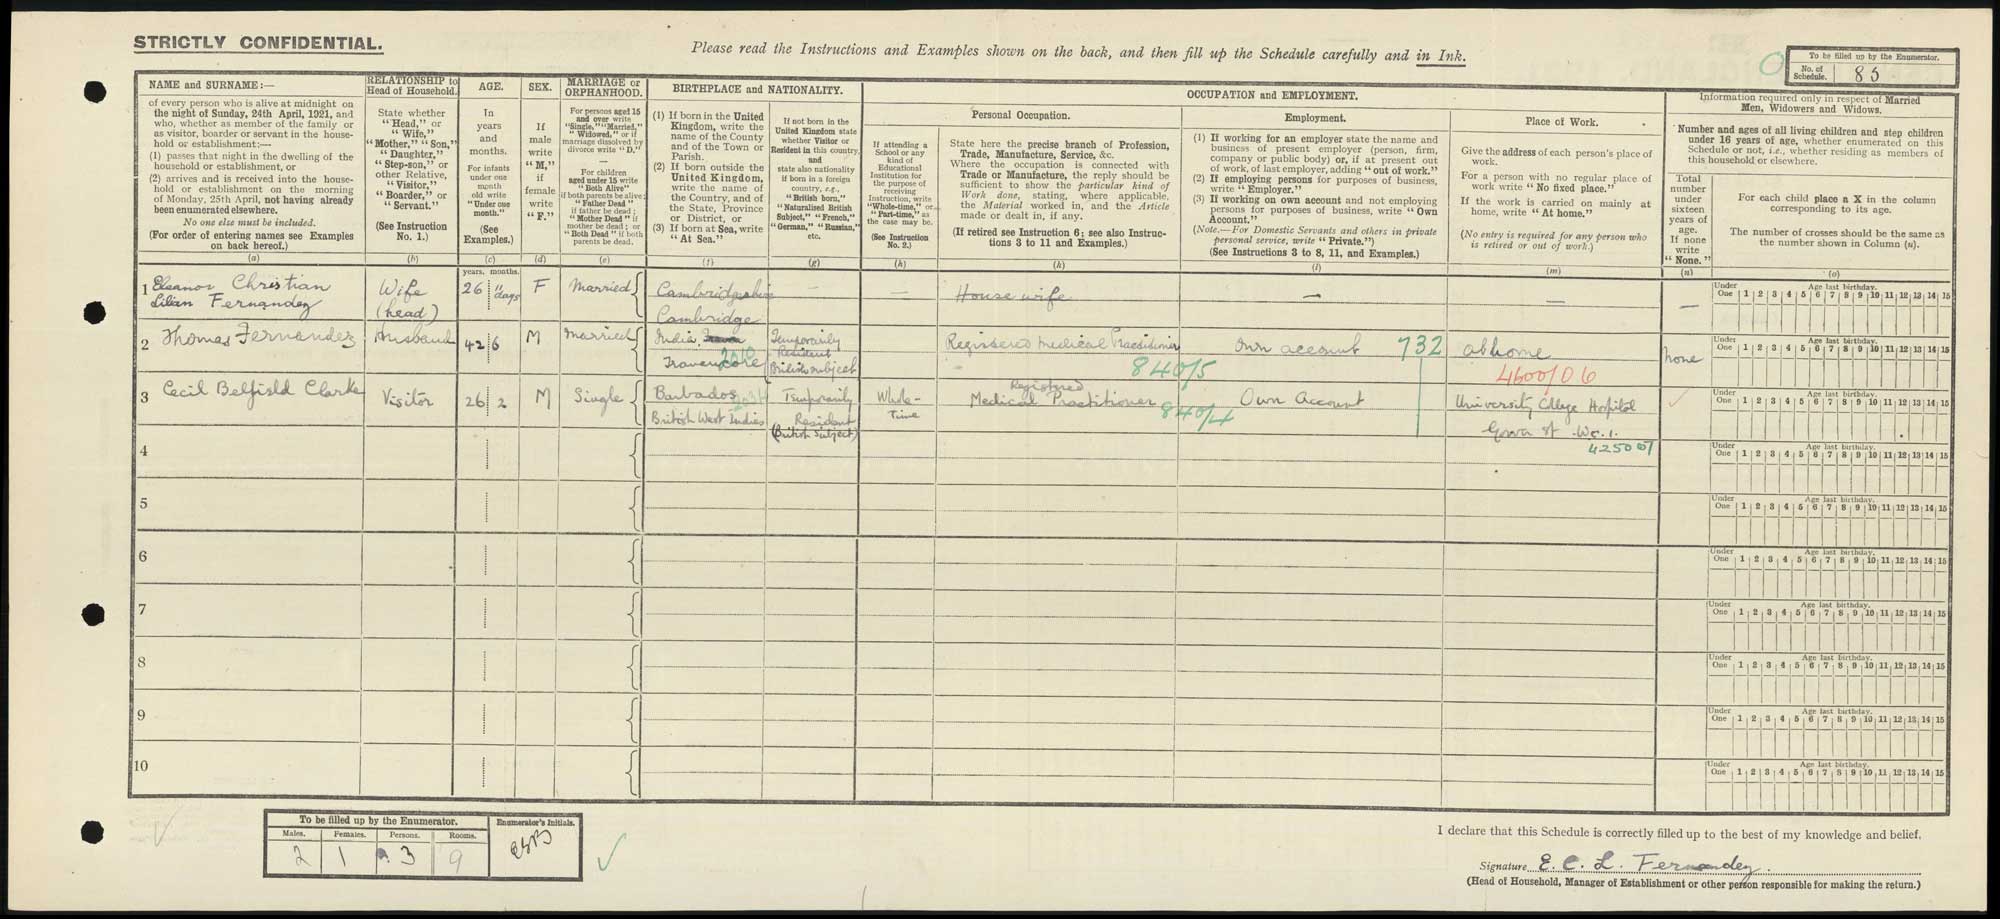 STRICTLY CONFIDENTIAL.
Please read the Instructions and Examples shown on the back, and then fill up the Schedule carefully and in Ink.
To be filled up by the Enumerator.
No. of Schedule. 85
NAME and SURNAME:—
of every person who is alive at midnight on
the night of Sunday, 24th April, 1921, and
who, whether as member of the family or
as visitor, boarder or servant in the house-
hold or establishment:—
(1) passes that night in the dwelling of the
household or establishment, or
(2) arrives and is received into the house-
hold or establishment on the morning
of Monday, 25th April, not having already
been enumerated elsewhere.
No one else must be included.
(For order of entering names see Examples
on back hereof.)
(a)
RELATIONSHIP to
Head of Household.
State whether
"Head," or
"Wife,"
"Mother," "Son,"
"Daughter,"
"Step-son," or
other Relative,
"Visitor,"
"Boarder," or
"Servant."
(See Instruction
No. 1.)
(b)
AGE.
In
years
and
months.
For infants
under one
month
old write
"Under one
month."
(See
Examples.)
(c)
SEX.
If
male
write
"M,"
if
female
write
"F."
(d)
MARRIAGE or
ORPHANHOOD.
For persons aged 15
and over write
"Single," "Married,"
"Widowed," or if
marriage dissolved by
divorce write "D."
—
For children
aged under 15 write
"Both Alive"
if both parents be alive;
"Father Dead"
if father be dead;
"Mother Dead" if
mother be dead; or
"Both Dead" if both
parents be dead.
(e)
BIRTHPLACE and NATIONALITY.
(1) If born in the United
Kingdom, write the
name of the County
and of the Town or
Parish.
(2) If born outside the
United Kingdom,
write the name of
the Country, and of
the State, Province
or District, or
(3) If born at Sea, write
"At Sea."
(f)
If not born in the
United Kingdom state
whether Visitor or
Resident in this country,
and
state also nationality
if born in a foreign
country, e.g.,
"British born,"
"Naturalised British
Subject," "French,"
"German," "Russian,"
etc.
(g)
OCCUPATION and EMPLOYMENT.
If attending a
School or any
kind of
Educational
Institution for
the purpose of
receiving
Instruction, write
"Whole-time," or
"Part-time," as
the case may be.
(See Instruction
No. 2.)
(h)
Personal Occupation.
State here the precise branch of Profession,
Trade, Manufacture, Service, &c.
Where the occupation is connected with
Trade or Manufacture, the reply should be
sufficient to show the particular kind of
Work done, stating, where applicable,
the Material worked in, and the Article
made or dealt in, if any.
(If retired see Instruction 6; see also Instruc-
tions 3 to 11 and Examples.)
(k)
Employment.
(1) If working for an employer state the name and
business of present employer (person, firm,
company or public body) or, if at present out
of work, of last employer, adding "out of work."
(2) If employing persons for purposes of business,
write "Employer."
(3) If working on own account and not employing
persons for purposes of business, write "Own
Account."
(Note.—For Domestic Servants and others in private
personal service, write "Private.")
(See Instructions 3 to 8, 11, and Examples.)
(l)
Place of Work.
Give the address of each person's place of
work.
For a person with no regular place of
work write "No fixed place."
If the work is carried on mainly at
home, write "At home."
(No entry is required for any person who
is retired or out of work.)
(m)
Information required only in respect of Married
Men, Widowers and Widows.
Number and ages of all living children and step children
under 16 years of age, whether enumerated on this
Schedule or not, i.e., whether residing as members of
this household or elsewhere.
Total
number
under
sixteen
years of
age.
If none
write
"None."
(n)
For each child place a X in the column
corresponding to its age.
The number of crosses should be the same as
the number shown in Column (n).
(o)
years. months.
1 Eleanor Christian Lilian Fernandez
Wife (head)
26 11 days
F
Married
Cambridgeshire
Cambridge
—
—
House wife
—
—
—
Under One Age last birthday. 1 2 3 4 5 6 7 8 9 10 11 12 13 14 15
2 Thomas Fernandez
Husband
42 6
M
Married
India
Travencore
2010
Temporarily
Resident
British subject
Registered Medical Practitioner
840/5
Own account
732
at home
4600/06
None
Under One Age last birthday. 1 2 3 4 5 6 7 8 9 10 11 12 13 14 15
3 Cecil Belfield Clarke
Visitor
26 2
M
Single
Barbados
British West Indies
Temporarily
Resident
(British Subject)
Whole-
Time
Registered
Medical Practitioner
840/4
Own Account
University College Hospital
Gower St. W.C.1.
Under One Age last birthday. 1 2 3 4 5 6 7 8 9 10 11 12 13 14 15
4
Under One Age last birthday. 1 2 3 4 5 6 7 8 9 10 11 12 13 14 15
5
Under One Age last birthday. 1 2 3 4 5 6 7 8 9 10 11 12 13 14 15
6
Under One Age last birthday. 1 2 3 4 5 6 7 8 9 10 11 12 13 14 15
7
Under One Age last birthday. 1 2 3 4 5 6 7 8 9 10 11 12 13 14 15
8
Under One Age last birthday. 1 2 3 4 5 6 7 8 9 10 11 12 13 14 15
9
Under One Age last birthday. 1 2 3 4 5 6 7 8 9 10 11 12 13 14 15
10
Under One Age last birthday. 1 2 3 4 5 6 7 8 9 10 11 12 13 14 15
To be filled up by the Enumerator.
Enumerator's Initials.
Males. Females. Persons. Rooms.
2 1 3 9
I declare that this Schedule is correctly filled up to the best of my knowledge and belief.
Signature E. C. L. Fernandez.
(Head of Household, Manager of Establishment or other person responsible for making the return.)